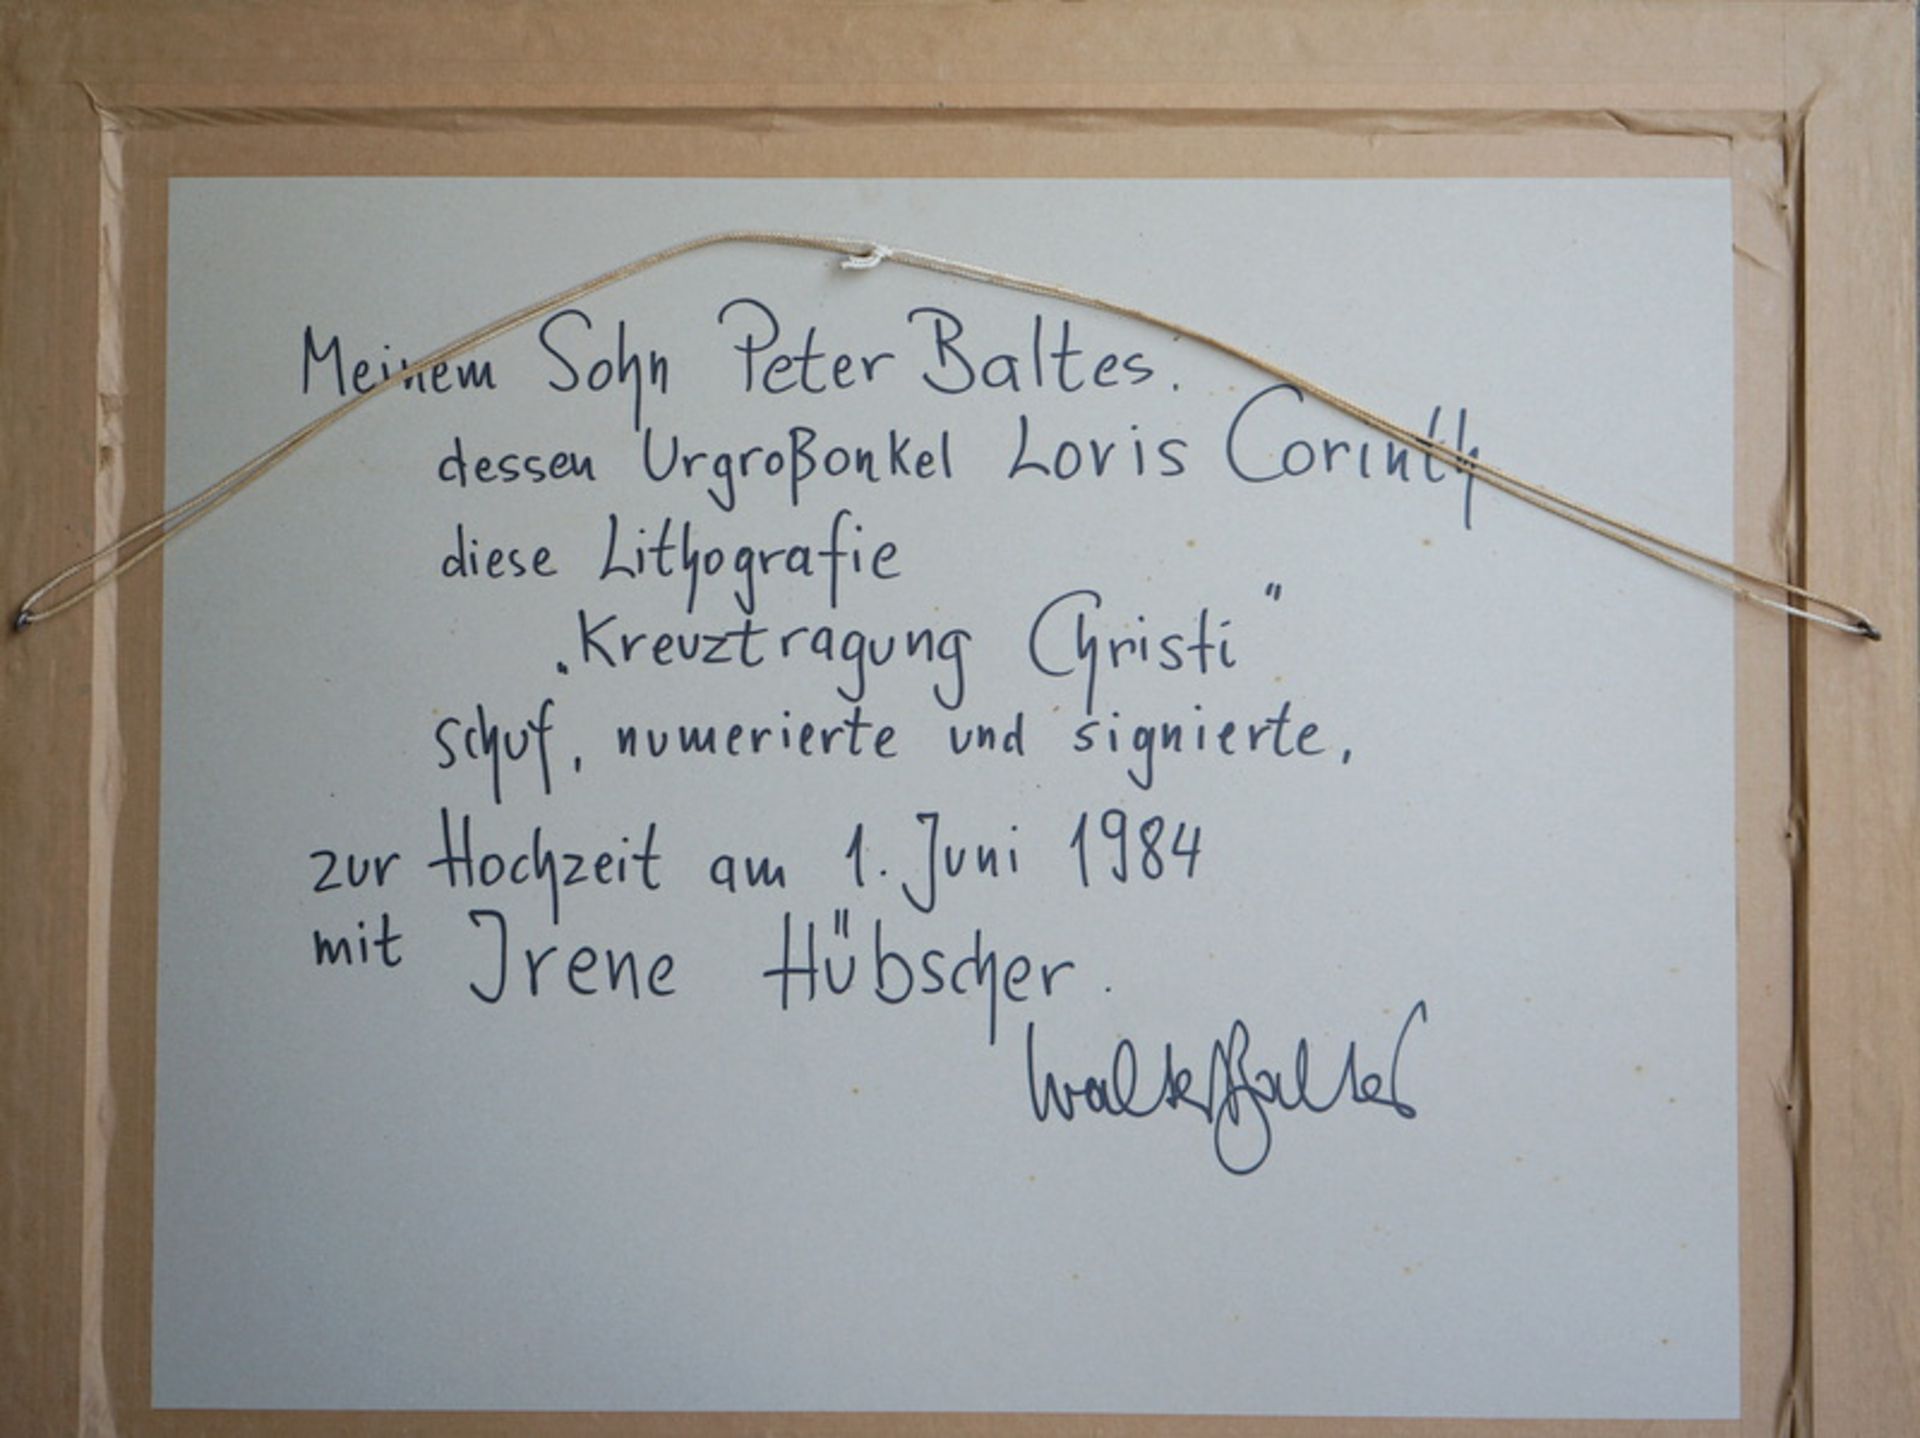 Meinem Sohn Peter Baltes.
dessen Urgroßonkel Lovis Corinth
diese Lithografie
„Kreuztragung Christi"
schuf, numerierte und signierte,
zur Hochzeit am 1. Juni 1984
mit Irene Hübscher.
Walter Baltes